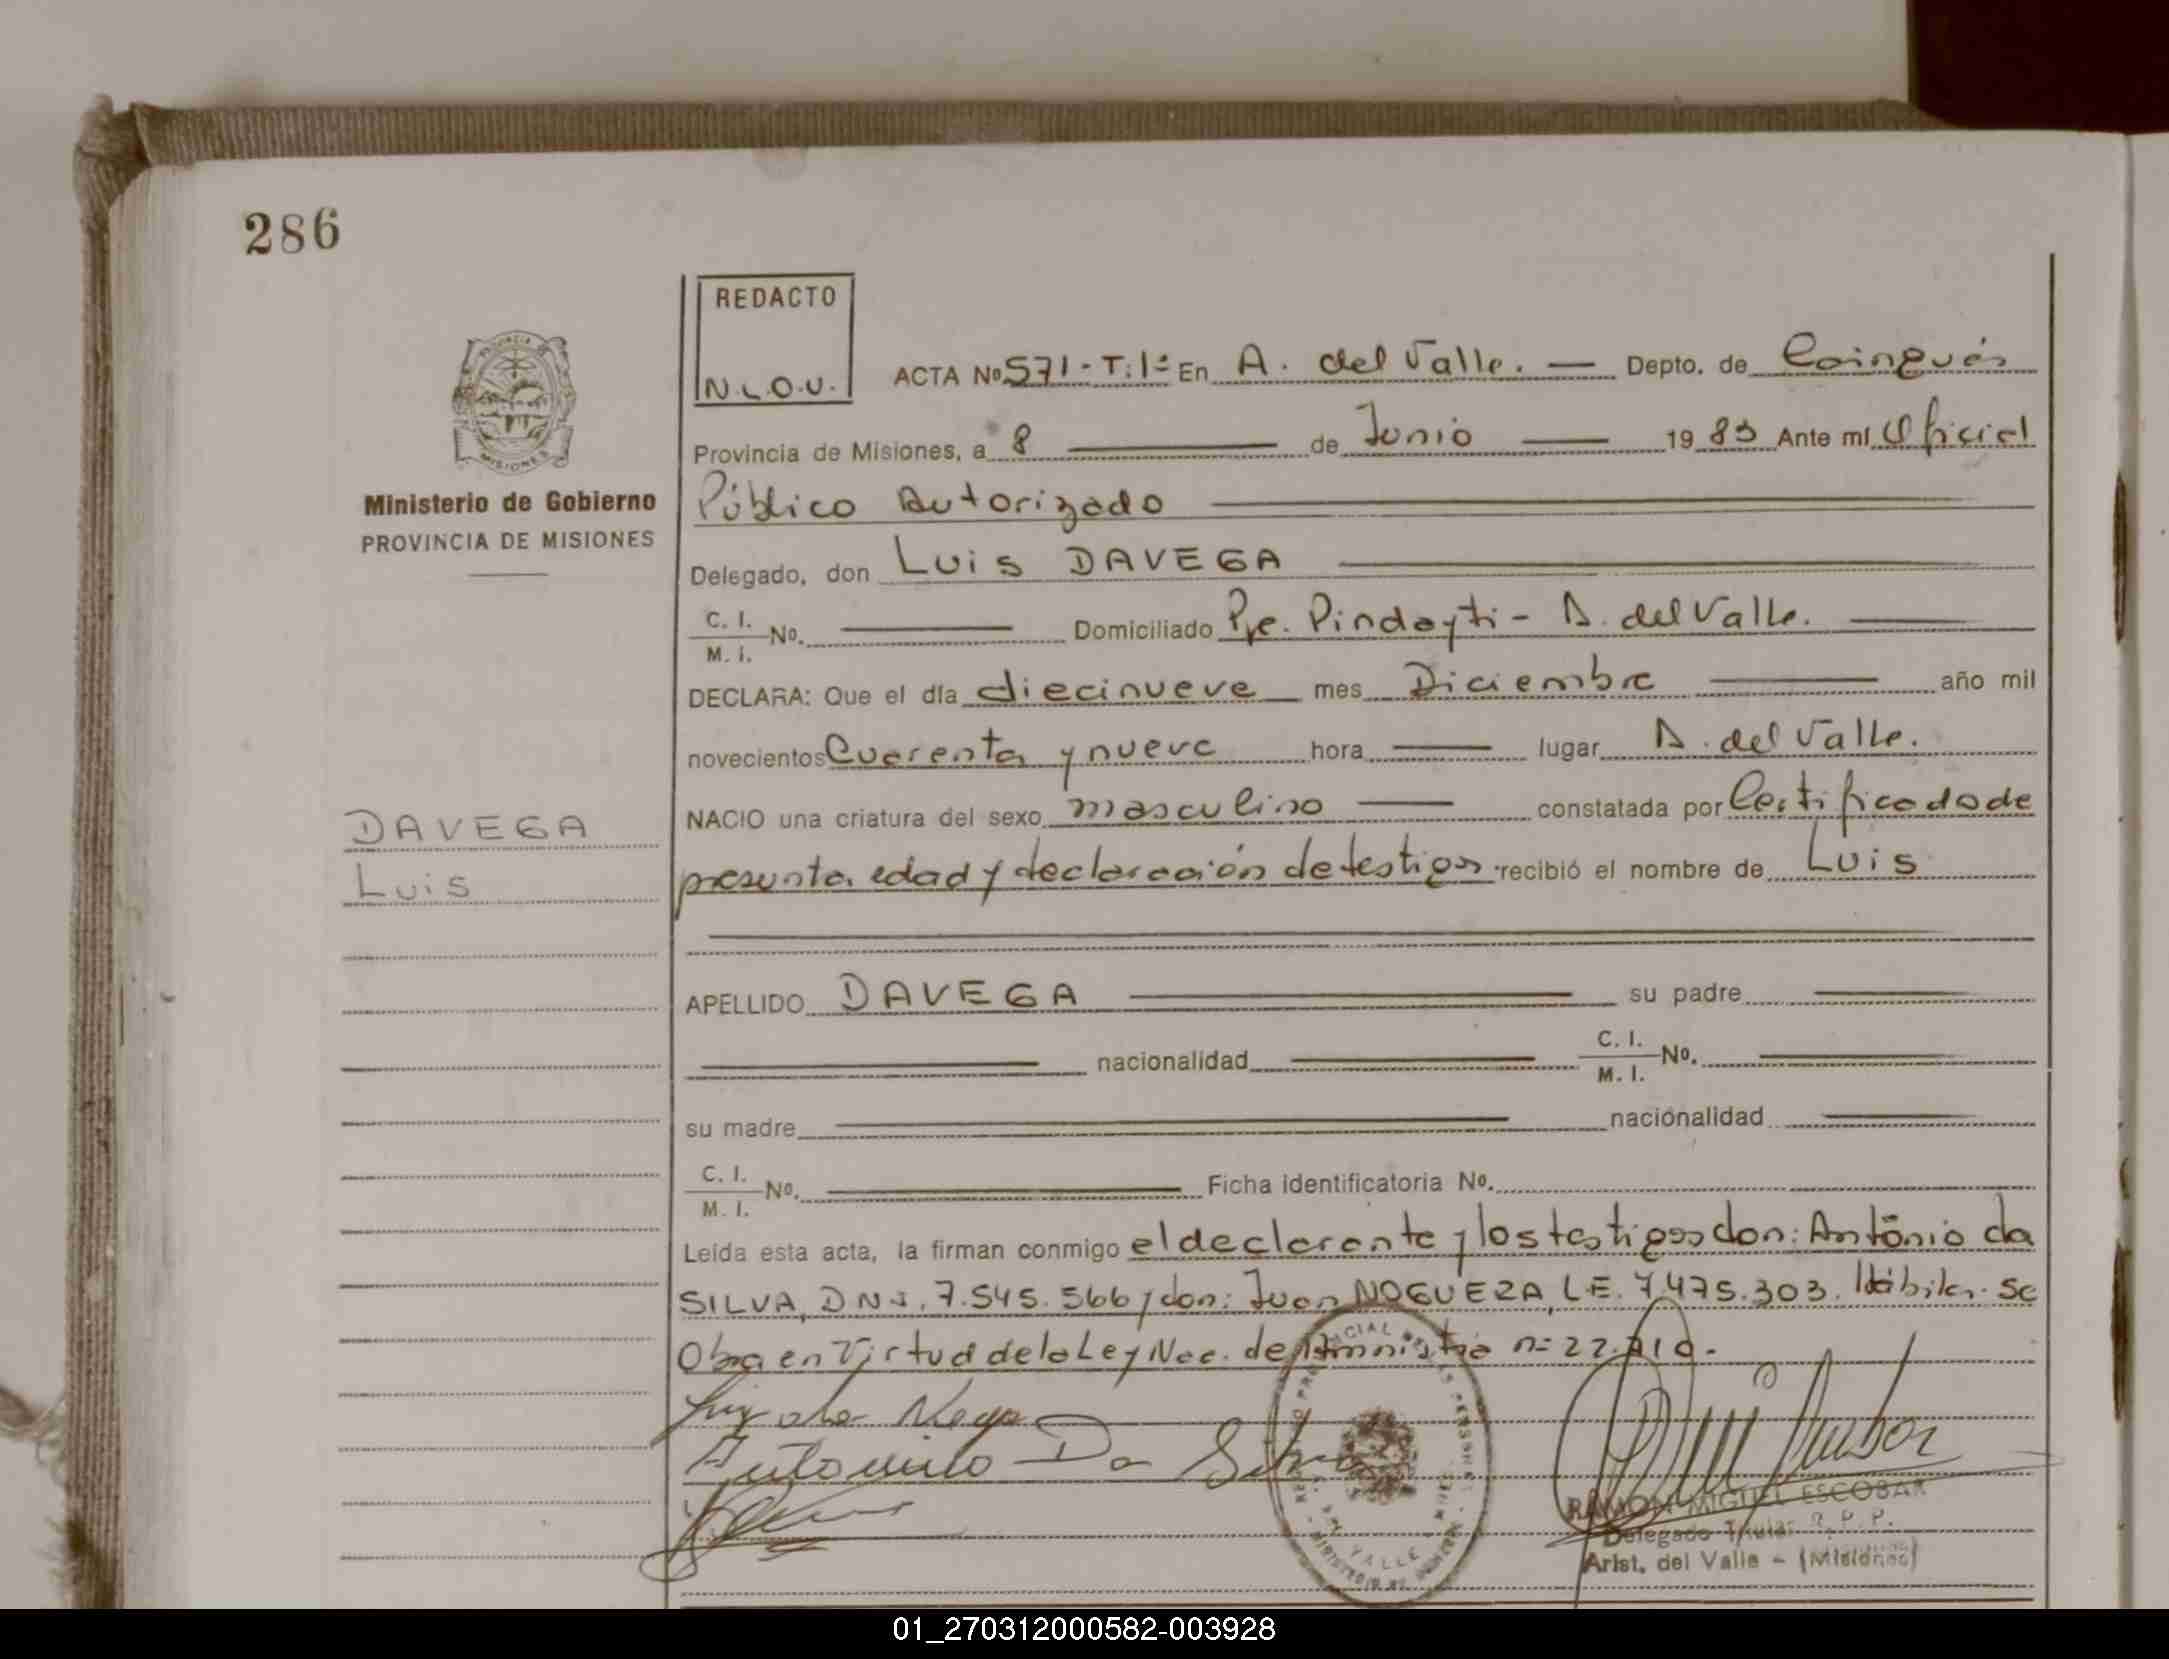 286
REDACTO
N.L.O.U.
PROVINCIA DE
MISIONES
Ministerio de Gobierno
PROVINCIA DE MISIONES
ACTA Nº 571-T:1º En A. del Valle. — Depto. de Cainguás
Provincia de Misiones, a 8 — de Junio — 1983 Ante mí Oficial
Público Autorizado
Delegado, don Luis DAVEGA
C. I.
M. I. Nº. — Domiciliado Pje. Pindayti - A. del Valle. —
DECLARA: Que el día diecinueve mes Diciembre — año mil
novecientos Cuarenta y nueve hora — lugar A. del Valle.
DAVEGA
Luis
NACIO una criatura del sexo masculino — constatada por Certificado de
presunta edad y declaración de testigos recibió el nombre de Luis
APELLIDO DAVEGA — su padre —
— nacionalidad — C. I.
M. I. Nº. —
su madre — nacionalidad —
C. I.
M. I. Nº. — Ficha identificatoria Nº.
Leída esta acta, la firman conmigo el declarante y los testigos don: Antônio da
SILVA, DNI. 7.545.566 y don: Juan NOGUEZA, L.E. 7.475.303. Hábiles. Se
Obra en Virtud de la Ley Nac. de Amnistía nº 22.
Antonino Da Silva
VALLE
RAMON MIGUEL ESCOBAR
Delegado Titular R. P. P.
Arist. del Valle - (Misiones)
01_270312000582-003928